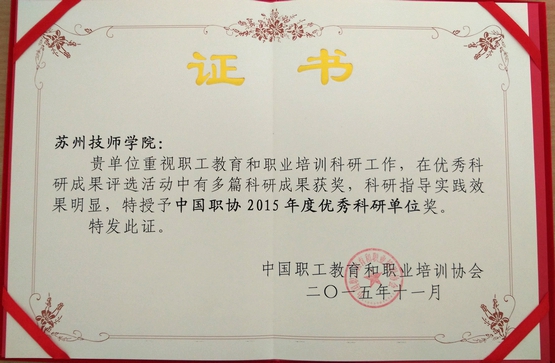 证书
苏州技师学院：
贵单位重视职工教育和职业培训科研工作，在优秀科
研成果评选活动中有多篇科研成果获奖，科研指导实践效
果明显，特授予中国职协2015年度优秀科研单位奖。
特发此证。
中国职工教育和职业培训协会
二〇一五年十一月